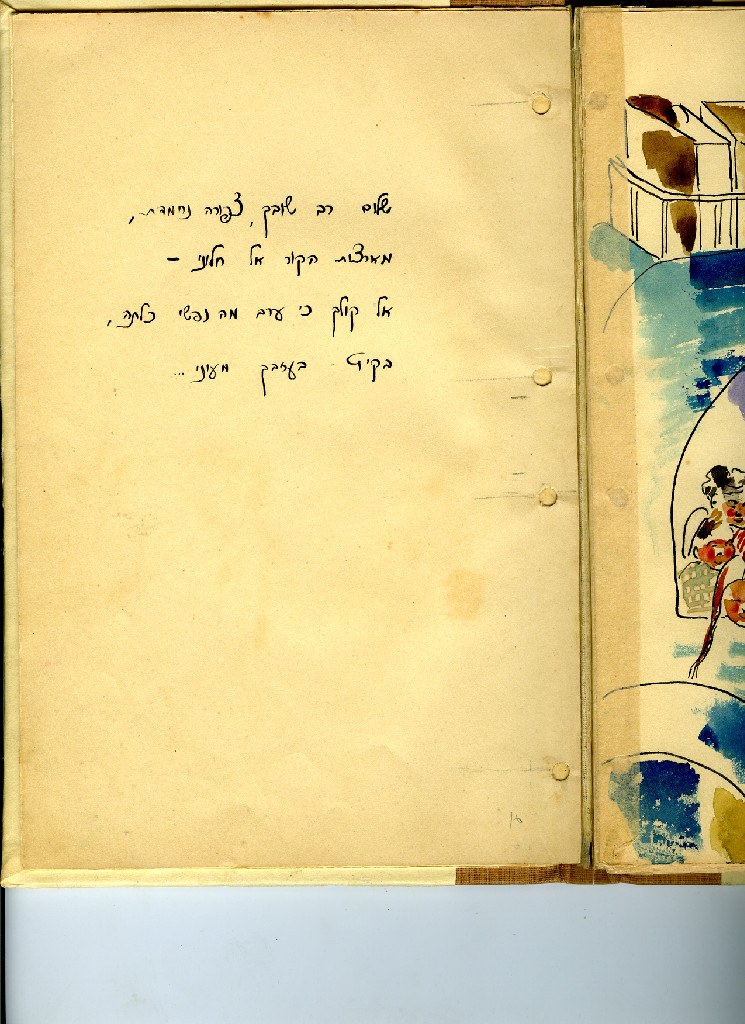 שלום רב שובך, צפורה נחמדת,
מארצות הקור אל חלוני –
אל קולך כי ערב מה נפשי כלתה,
בקיץ בעזבך מעוני ...